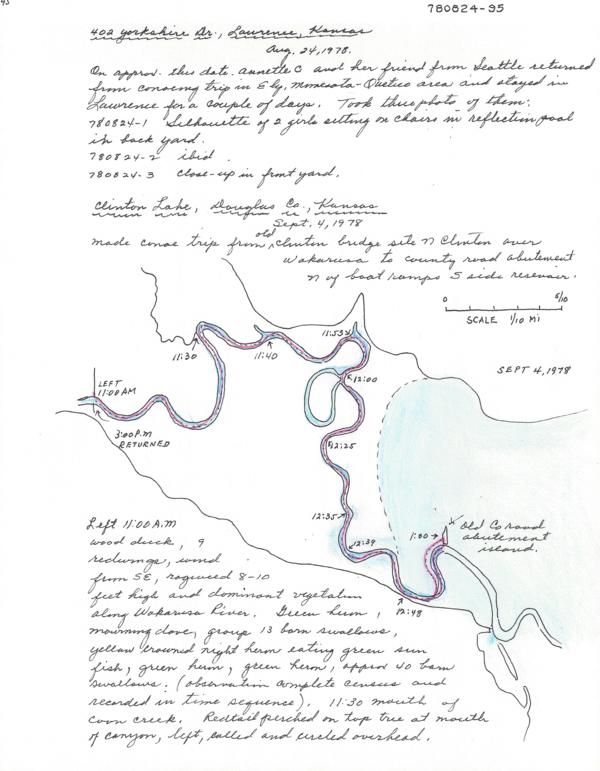 780824-95
402 Yorkshire Dr., Lawrence, Kansas
Aug. 24, 1978.
On approx. this date Annette C and her friend from Seattle returned
from canoeing trip in Ely, Minnesota-Quetico area and stayed in
Lawrence for a couple of days. Took three photos of them:
780824-1 Silhouette of 2 girls sitting on chairs in reflection pool
in back yard.
780824-2 ibid.
780824-3 close-up in front yard.
Clinton Lake, Douglas Co., Kansas
Sept. 4, 1978
made canoe trip from old Clinton bridge site N Clinton over
Wakarusa to county road abutement
N of boat ramps S side resevoir.
0 5/10
SCALE 1/10 MI
SEPT 4, 1978
11:30
11:40
11:53
12:00
LEFT
11:00 AM
3:00 P.M
RETURNED
12:25
12:35
12:39
1:00
Old Co road
abutement
island.
12:48
Left 11:00 A.M
wood duck, 9
redwings, wind
from SE, ragweed 8-10
feet high and dominant vegetation
along Wakarusa River. Green heron,
mourning dove, group 13 barn swallows,
yellow crowned night heron eating green sun
fish, green heron, green heron, approx 40 barn
swallows. (observation complete census and
recorded in time sequence). 11:30 mouth of
Coon creek. Redtail perched on top tree at mouth
of canyon, left, called and circled overhead.